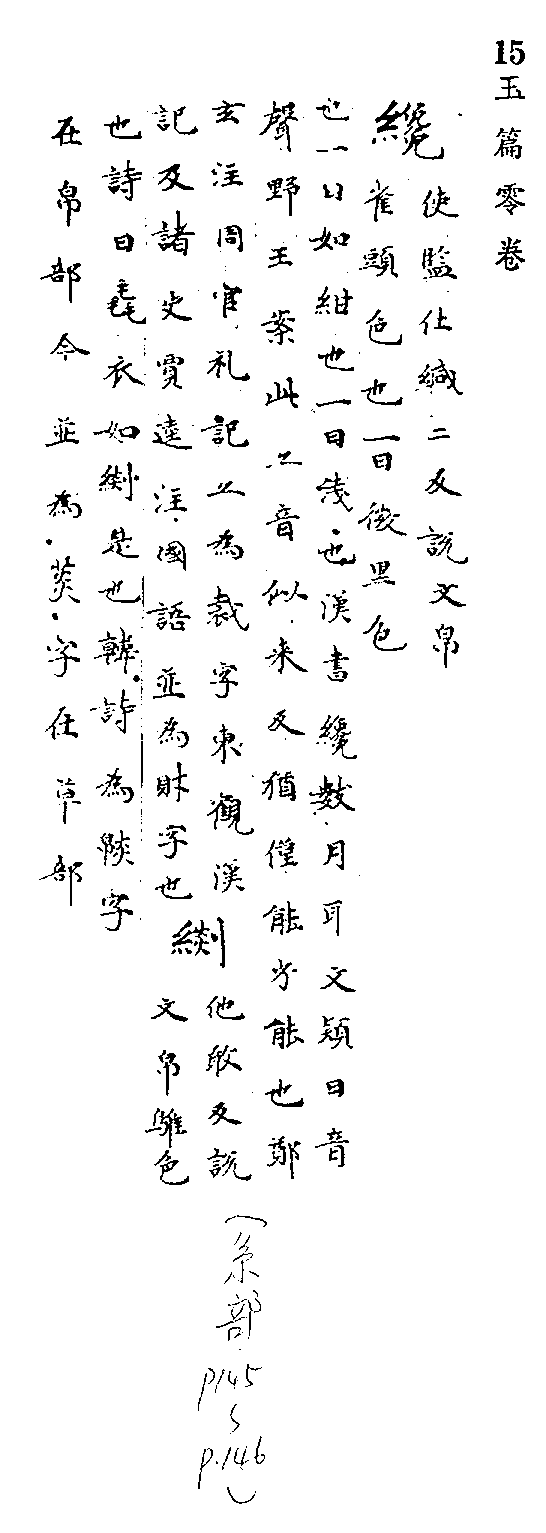 15 玉篇零卷
纔 使監仕緘二反説文帛
雀頭色也一曰微黒色
也一曰如紺也一曰浅也漢書纔數月耳文穎曰音
聲野王案此亦音似来反猶僅能劣能也鄭
玄注周官礼記亦為裁字東觀漢
記及諸史賈逵注國語並為財字也
緂 他敢反説
文帛騅色
也詩曰毳衣如緂是也韓詩為 字
在帛部今並為菼字在草部
(糸部
p.145
〜
p.146)